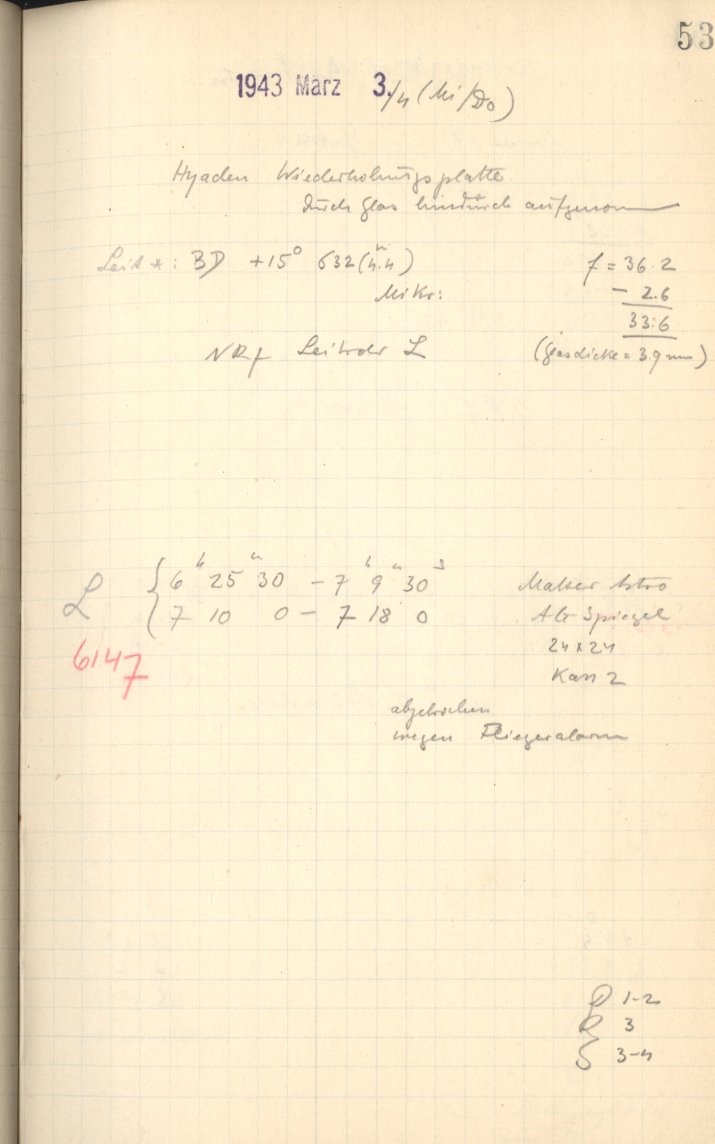 53
1943 März 3./4 (Mi/Do)
Hyaden Wiederholungsplatte
durch Glas hindurch aufgenom
Leit *: BD +15° 632 (4.4)
f = 36.2
Mikr:
- 2.6
33.6
NRf Leitrohr L
(Glasdicke = 39 mm)
L { 6h 25m 30 - 7h 9m 30s
7 10 0 - 7 18 0
6147
Astro
Spiegel
24 x 24
Kass 2
abgebrochen
wegen Fliegeralarm
1-2
3
S 3-4